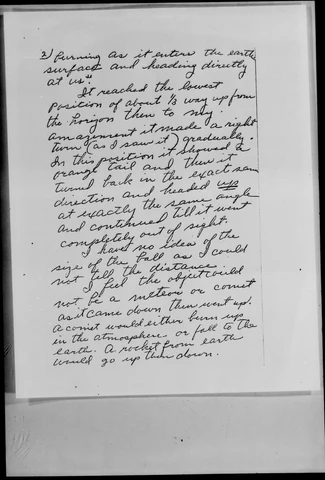 2) Burning as it enters the earth
surface and heading directly
at us."
It reached the lowest
position of about 1/3 way up from
the horizon then to my
amazement it made a right
turn (as I saw it) gradually.
In this position it showed a
orange tail and then it
turned back in the exact sam
direction and headed up
at exactly the same angle
and continued till it went
completely out of sight.
I have no idea of the
size of the ball as I could
not tell the distance.
I feel the object could
not be a meteor or comet
as it came down then went up.
A comet would either burn up
in the atmosphere or fall to the
earth. A rocket from earth
would go up then down.